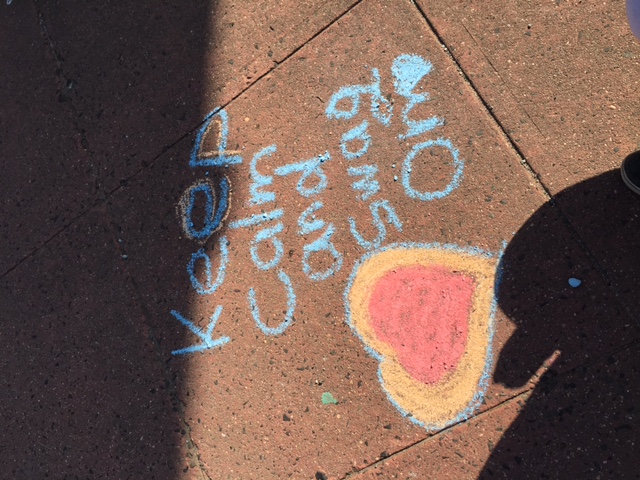 keep
calm
and
swag
On